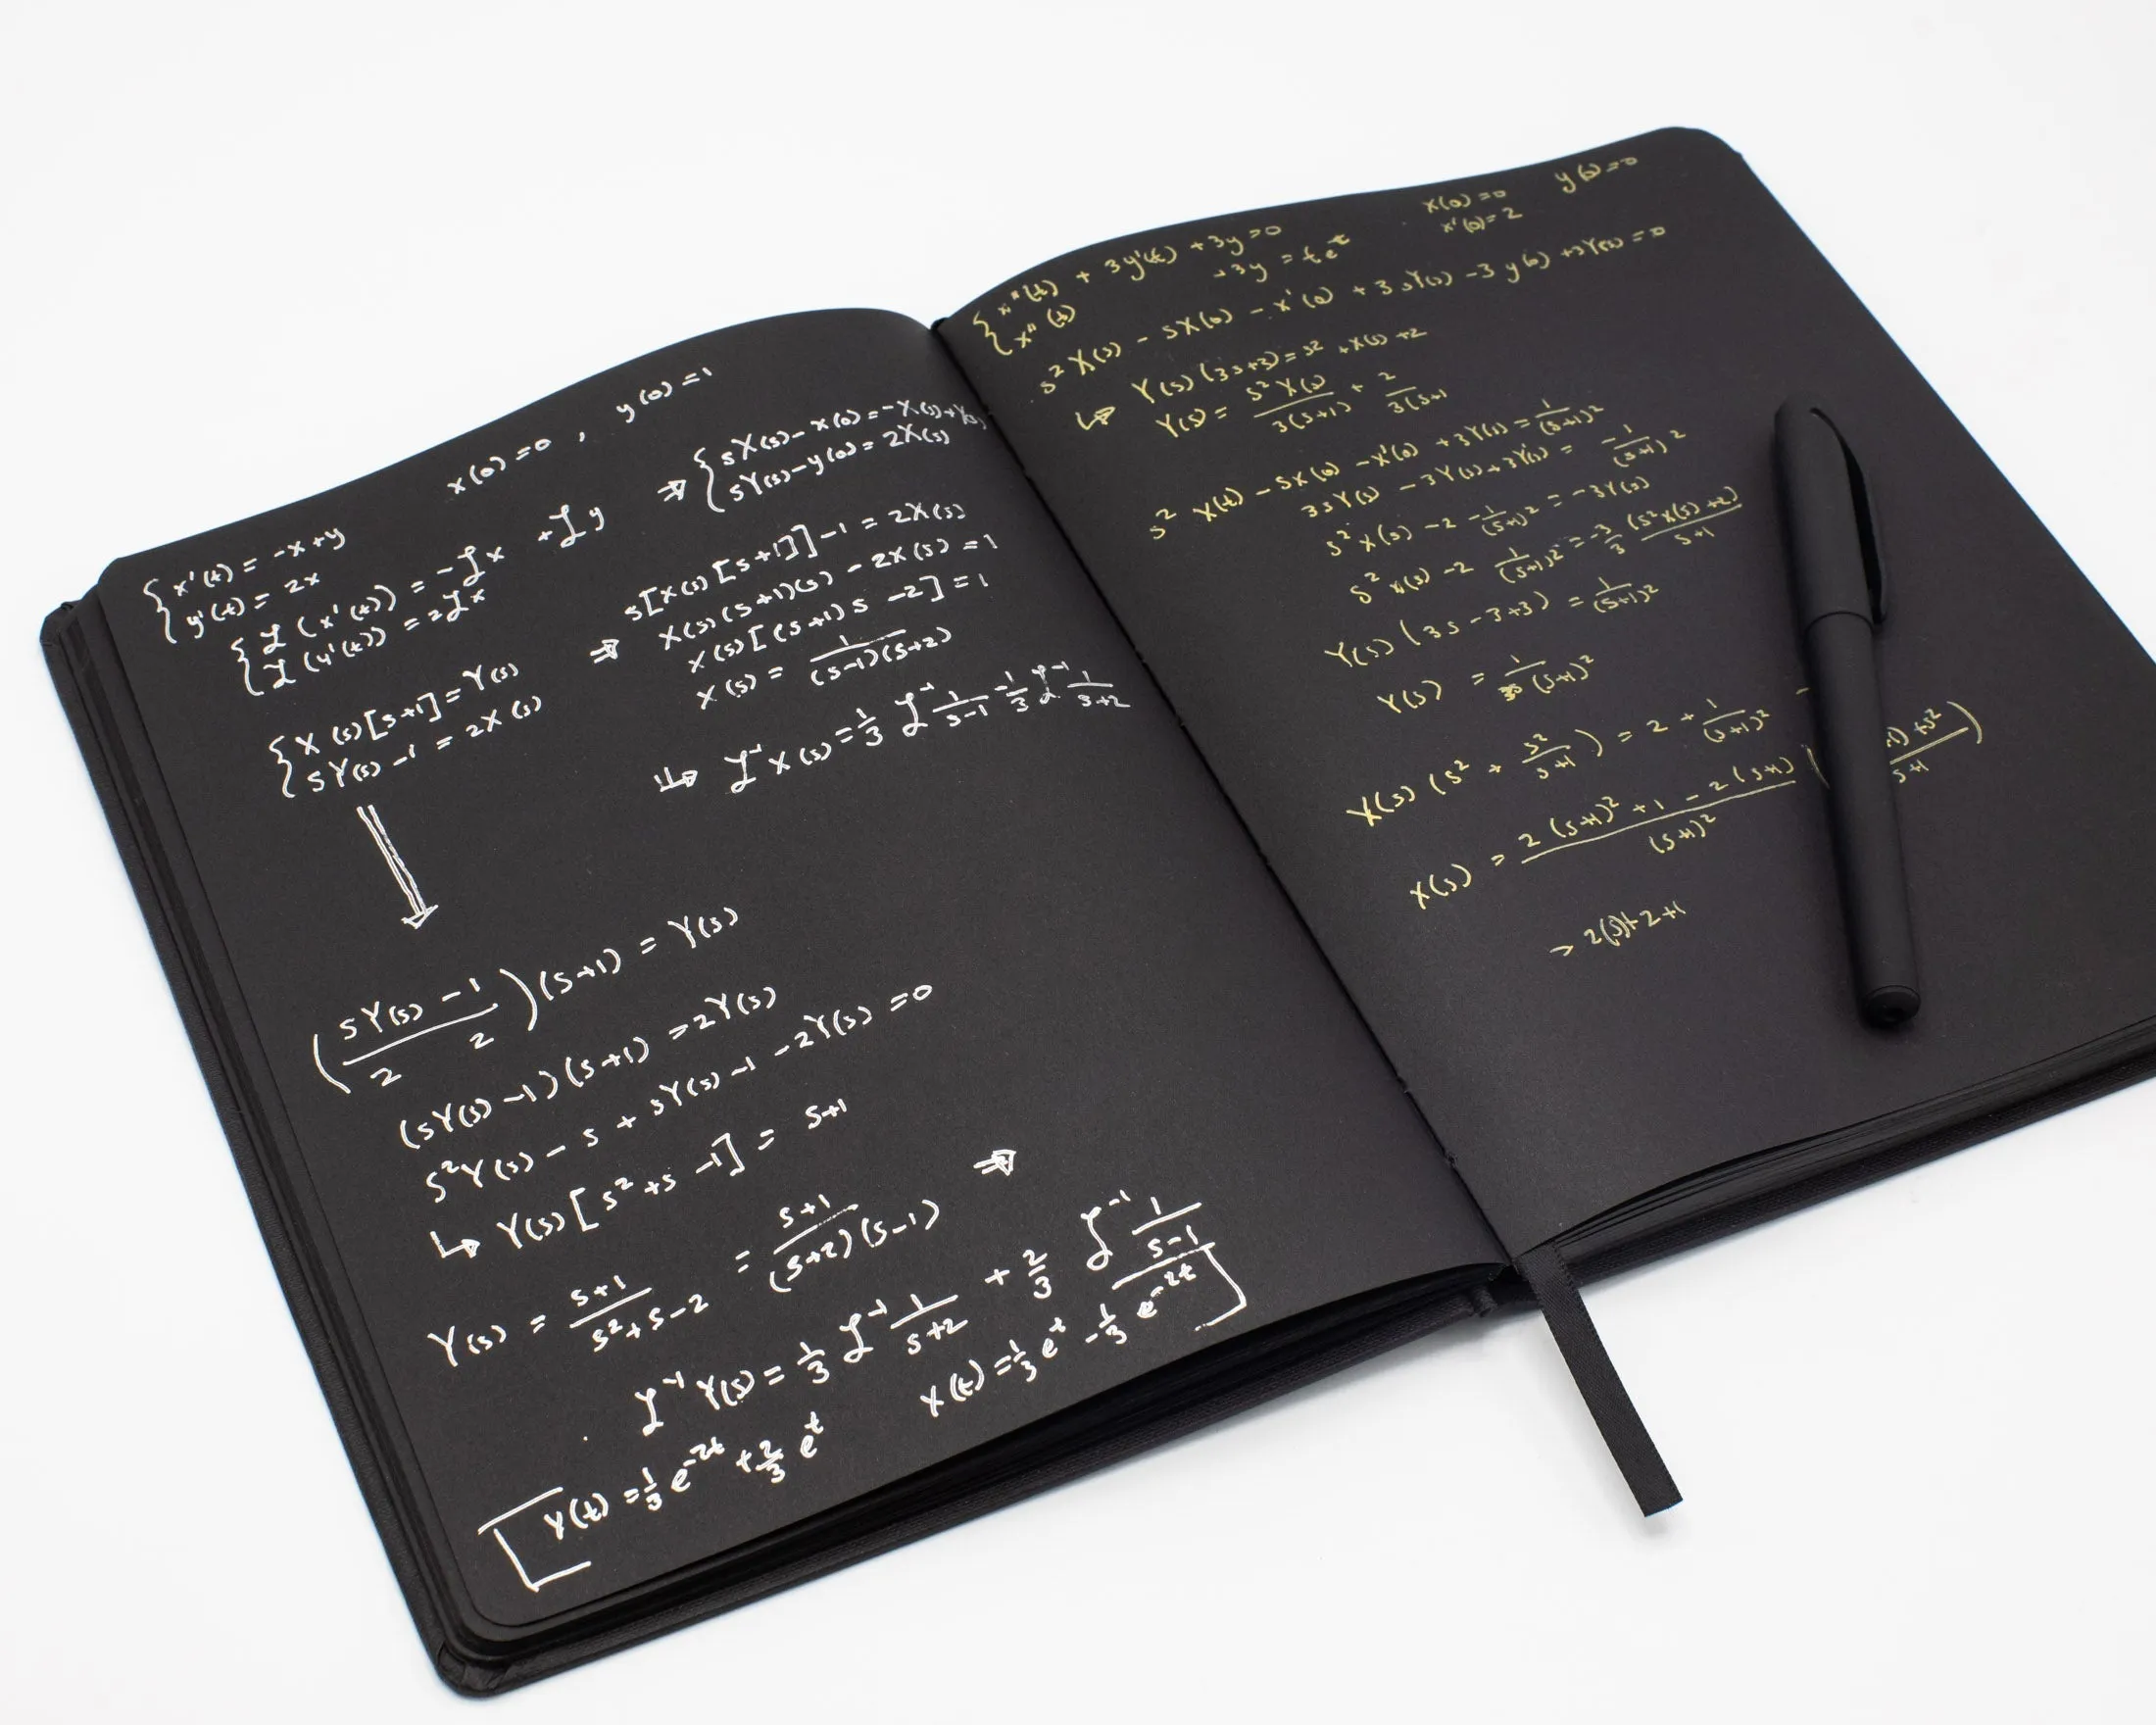 x(0) = 0 , y(0) = 1
{ x'(t) = -x+y
y'(t) = 2x
{ ℒ(x'(t)) = -ℒx + ℒy
ℒ(y'(t)) = 2ℒx
⇒ { sX(s) - x(0) = -X(s)+Y(s)
sY(s) - y(0) = 2X(s)
{ X(s)[s+1] = Y(s)
sY(s) - 1 = 2X(s)
⇒ s[X(s)[s+1]] - 1 = 2X(s)
X(s)(s+1)(s) - 2X(s) = 1
X(s)[(s+1)s - 2] = 1
X(s) = 1/((s-1)(s+2))
↳ ℒ⁻¹ X(s) = 1/3 ℒ⁻¹ 1/(s-1) - 1/3 ℒ⁻¹ 1/(s+2)
((sY(s) - 1)/2 2)(s+1) = Y(s)
(sY(s) - 1)(s+1) = 2Y(s)
s²Y(s) - s + sY(s) - 1 - 2Y(s) = 0
↳ Y(s)[s² + s - 1] = s+1
Y(s) = (s+1)/(s²+s-2) = (s+1)/((s+2)(s-1)) ⇒
ℒ⁻¹ Y(s) = 1/3 ℒ⁻¹ 1/(s+2) + 2/3 ℒ⁻¹ 1/(s-1)
Y(t) = 1/3 e^-2t + 2/3 e^t X(t) = 1/3 e^t - 1/3 e^-2t
x(0) = 0 y(0) = 0
x'(0) = 2
{ x''(t) + 3y'(t) + 3y = 0
x''(t) +3y = te^t
s² X(s) - sX(0) - x'(0) + 3sY(s) - 3y(0) + 3Y(s) = 0
↳ Y(s)(3s+3) = s² + X(s) + 2
Y(s) = s²X(s)/(3(s+1)) + 2/(3(s+1
s² X(t) - sX(0) - x'(0) + 3Y(s) = 1/(s+1)²
3sY(s) - 3Y(s) + 3Y(s) = -1/(s+1)²
s² X(s) - 2 - 1/(s+1)² = -3Y(s)
s² X(s) - 2 1/(s+1)² = -3/3 (s²X(s)+2)/(s+1)
Y(s)(3s - 3 + 3) = 1/(s+1)²
Y(s) = 1/(3s (s+1)²
X(s)(s² + s²/(s+1)) = 2 + 1/(s+1)² -
X(s) = (2(s+1)² + 1 - 2(s+1))/(s+1)² ( ) + s²)/(s+1)
→ 2(s)+2+1